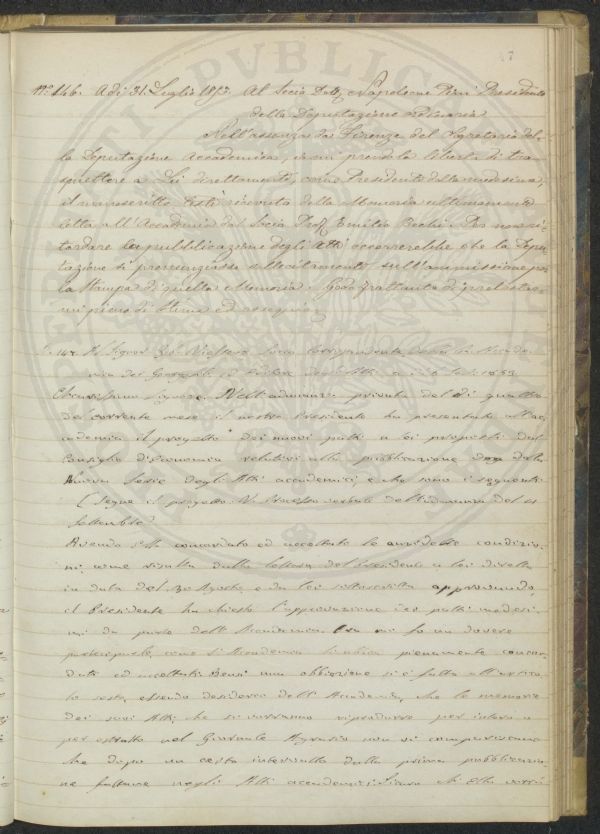 No. 146. Adì 31. Luglio 1853. Al Socio Dott. Napoleone Pini Presidente
della Deputazione ordinaria
Nell'assenza da Firenze del Segretario del-
la Deputazione Accademica, io mi prendo la libertà di tra-
smettere a Lei direttamente, come Presidente della medesima,
il manoscritto testè ricevuto della Memoria ultimamente
letta all'Accademia dal Socio Prof. Emilio Bechi. Per non ri-
tardare la pubblicazione degli Atti occorrerebbe che la Depu-
tazione si pronunziasse sollecitamente sull'ammissione per
la Stampa di quella Memoria. Godo frattanto di protestar-
mi pieno di stima ed ossequio
147. Al Signor Socio corrispondente della R. Accade-
mia dei Georgofili ed Editore degli Atti 1853
Chiarissimo Signore. Nell'adunanza privata del dì quattro
del corrente mese il nostro Presidente ha presentato all'Ac-
cademia il progetto dei nuovi patti a lei proposti dal
Consiglio d'Economia relativi alla pubblicazione della
Nuova Serie degli Atti accademici, e che sono i seguenti
(Segue il progetto. V. Processo verbale dell'adunanza del 4
Settembre)
Avendo Ella concordato ed accettate le suddette condizio-
ni, come risulta dalla lettera del Presidente a lei diretta
in data del 30 Agosto, e da lei sottoscritta approvando,
il Presidente ha chiesto l'approvazione dei patti medesi-
mi da parte dell'Accademia. Ora mi fo un dovere
parteciparle, come l'Accademia gli abbia pienamente concor-
dati ed accettati. Bensì una obbiezione si è fatta all'artico-
lo sesto, essendo desiderio dell'Accademia, che le memorie
dei suoi Atti, che si vorranno riprodurre per intero o
per estratto nel Giornale Agrario non vi compariscano
che dopo un certo intervallo dalla prima pubblicazio-
ne fattane negli Atti accademici. Sicuro che Ella vorrà